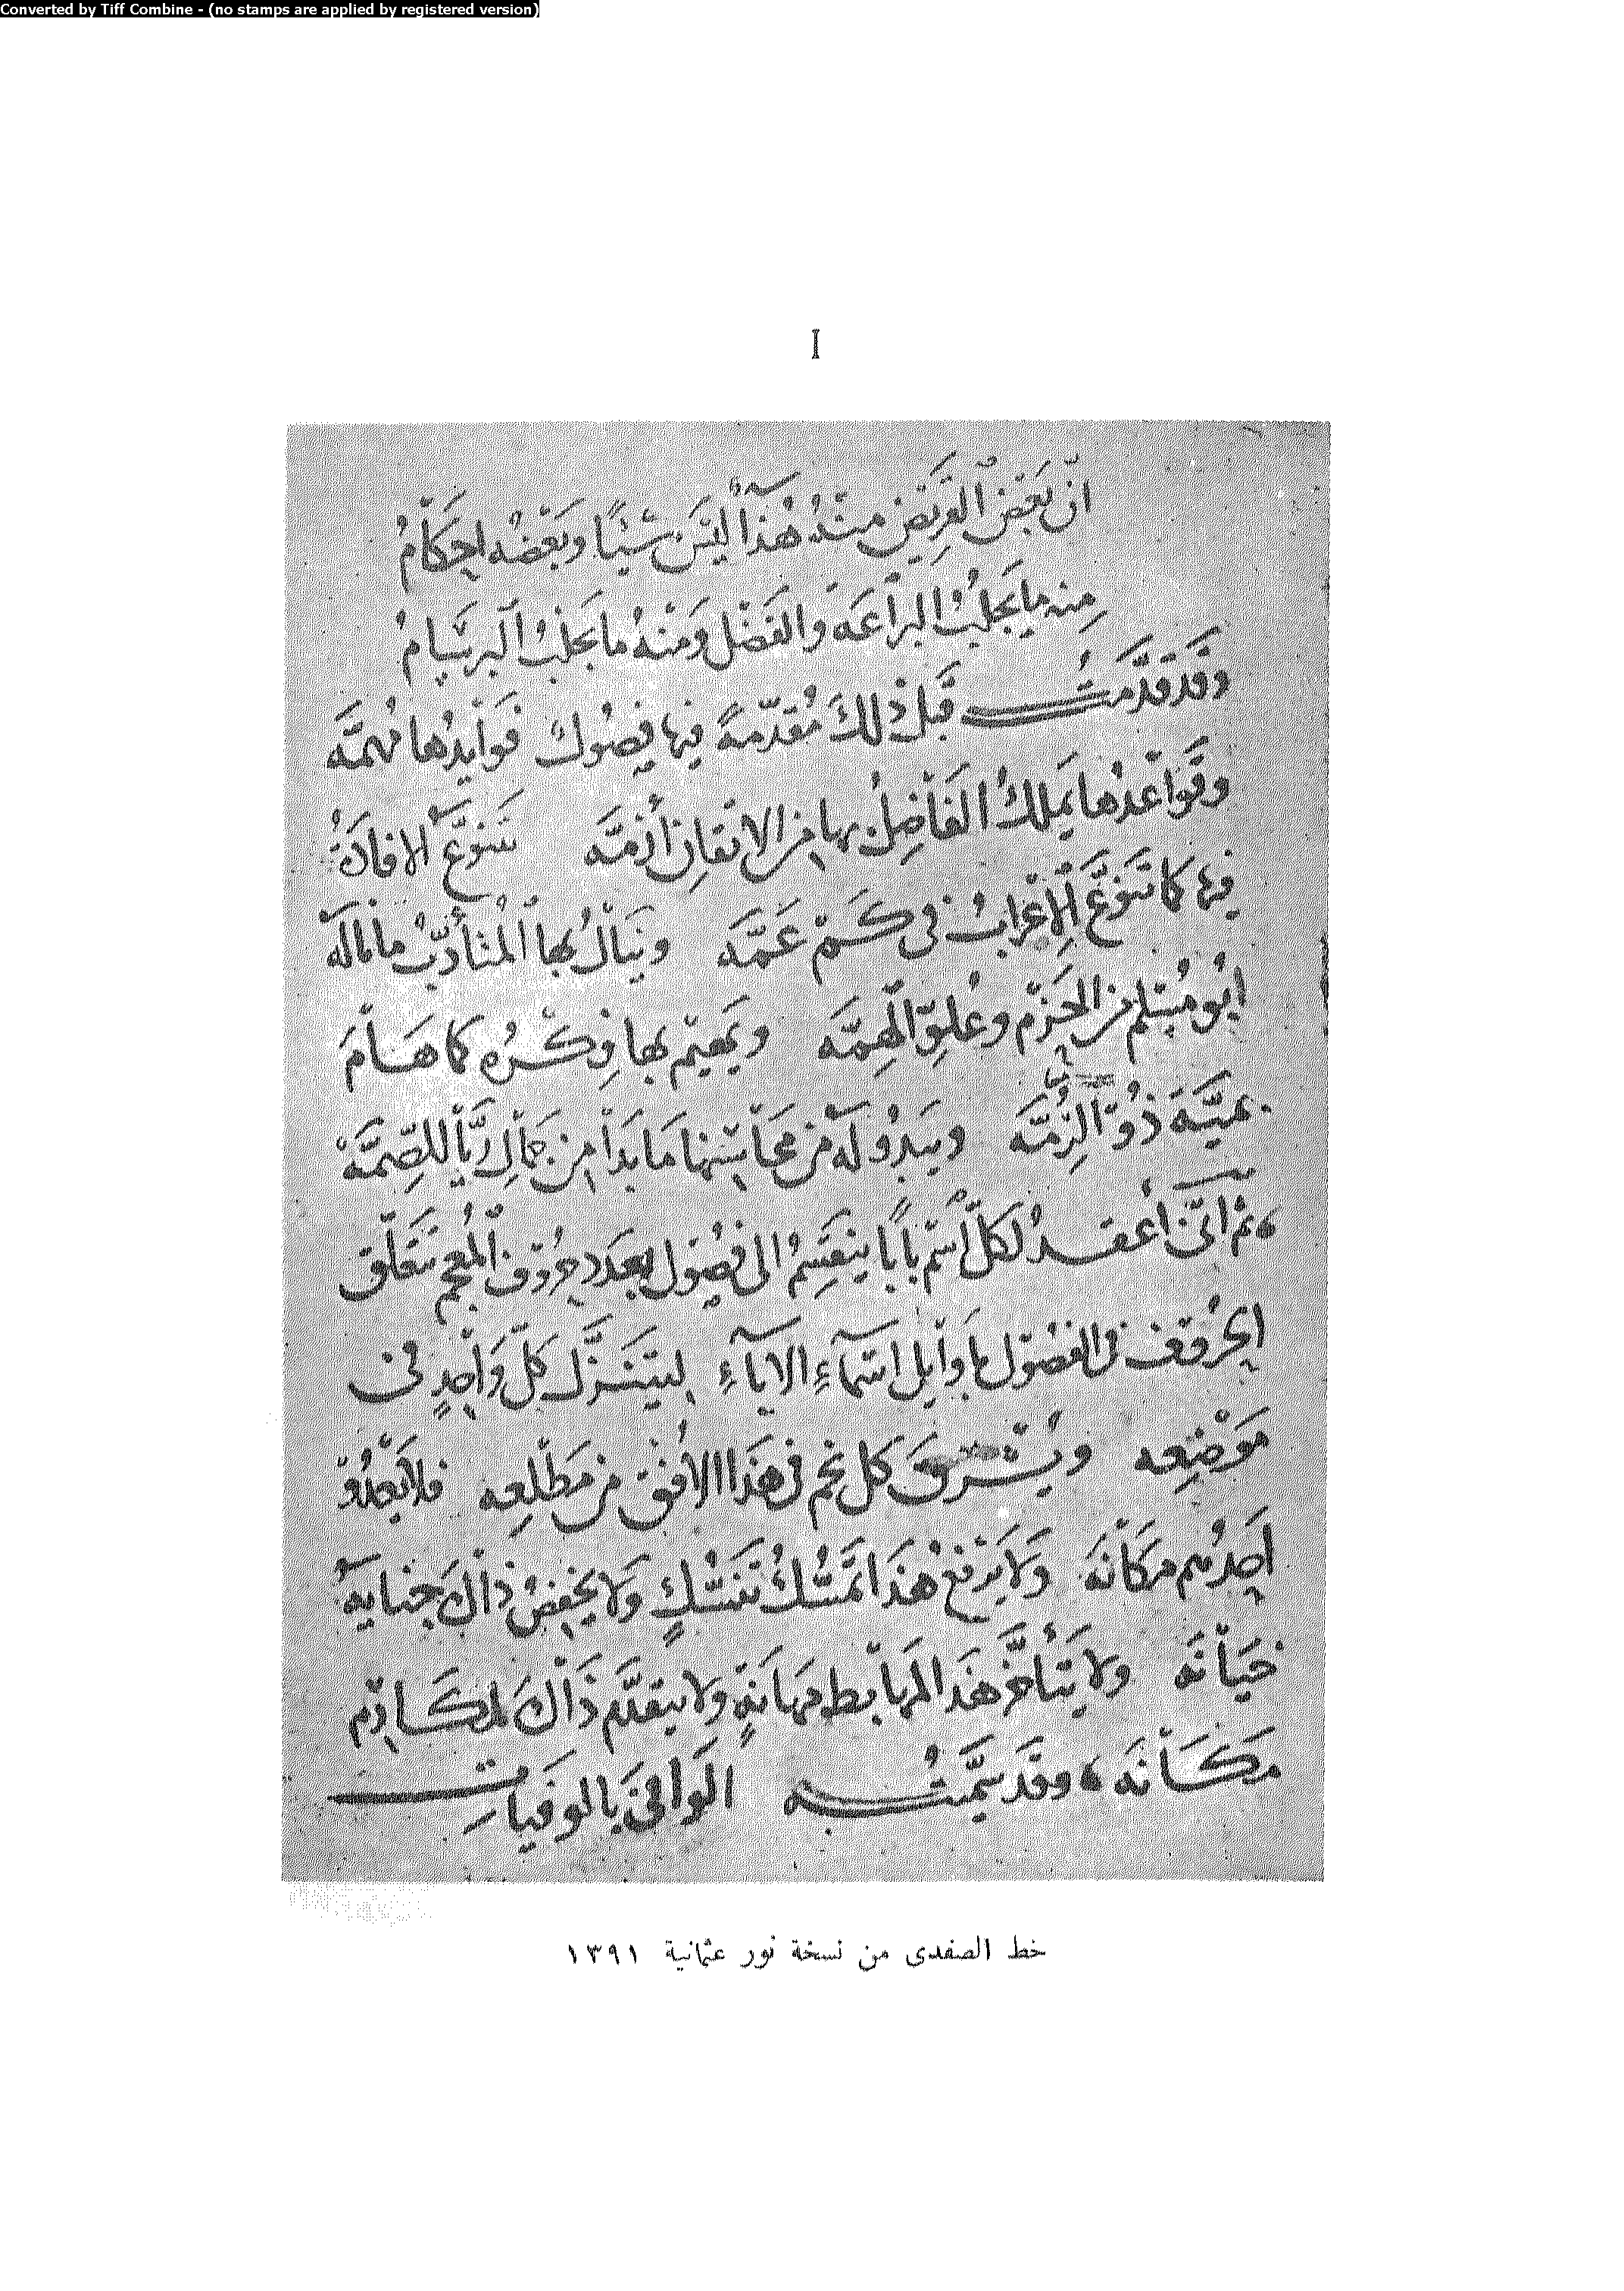 Converted by Tiff Combine - (no stamps are applied by registered version)
I
انّ بَعْضَ القَرِيضِ منهُ هُذآءٌ لَيْسَ شَيْئًا وبَعْضُه اَحكَامُ
مِنه ما يَجلبُ البَرَاعَةَ والفَضْلَ ومَنْهُ ما يَجلبُ البِرسَامُ
وقَد قدَّمتُ قَبلَ ذلكَ مُقدّمةً فيها فصُولٌ فَوَايدُها مُهمَّه
وقَواعدُها يَملكُ الفَاضِلُ بها من الاتقانِ أَزِمَّه تَتنوّعُ الافادَةُ
فيها كما تَنوّعَ الإعْرابُ في كَمْ عَمَّه ويَنَالُ بها المُتأدِّبُ ما نالهُ
ابُو مُسْلم من الحَزْم وعُلوّ الهِمَّه ويَهيمُ بها فِكْرُه كما هَامَ
بميَّةَ ذُو الرُمَّه ويَبدُو لَهُ من محَاسنها مَا بَدَا مِن جَمالِ رَيَّا للصِّمَّه
ثم انّى أعقدُ لكلّ اسْم بابًا ينقَسِمُ الى فصُول بعدَد حرُوف المُعجم تتعَلّق
الحرُوف في الفصُول باوَايل اسمآءِ الابآءِ ليتنَزَّل كلّ وَاحدٍ في
مَوْضِعه ويُشْرقَ كل نجم في هَذا الافق من مَطْلَعِه فلا يَعْدُو
اَحدُهم مكَانَه ولا يَرْتفعُ هَذا تمَسُّك تنَسُّكٍ ولا يخفضُ ذاكَ جنايه
خيَانَه ولا يَتأخَّر هَذا لمهابط مهَانةٍ ولا يتقدَّم ذَاكَ لمكَارم
مَكَانَه وقد سَمَّيتُه الوَافى بالوفيَات
خط الصفدى من نسخة نور عثمانية ١٣٩١